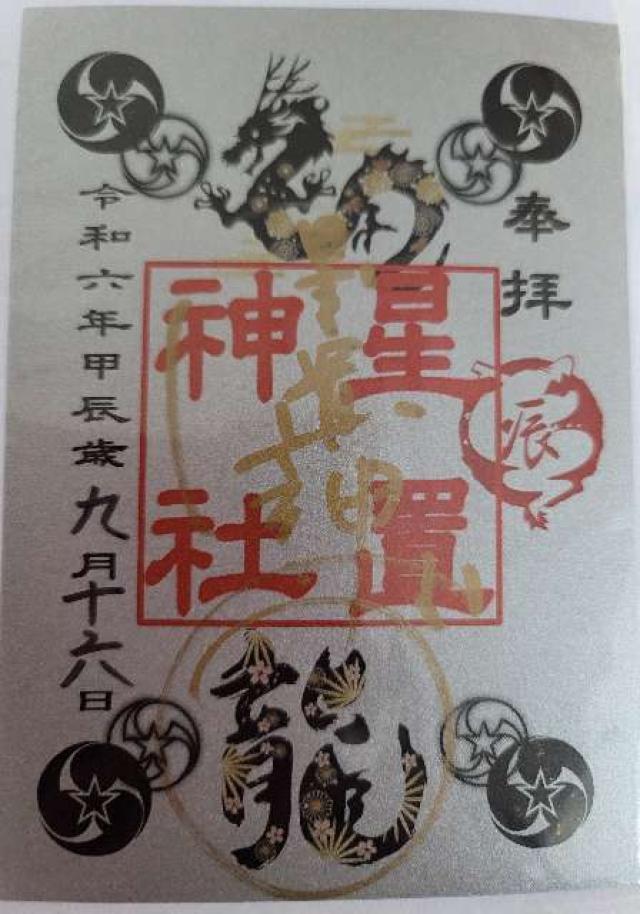 奉拝
辰
星置
神社
龍
令和六年甲辰歳九月十六日